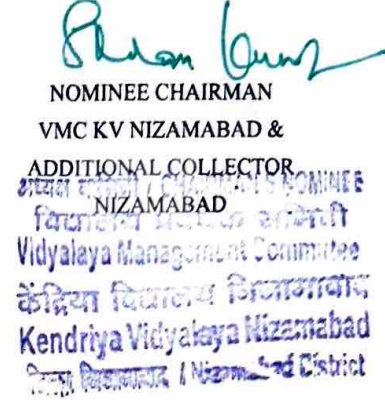 NOMINEE CHAIRMAN
VMC KV NIZAMABAD &
ADDITIONAL COLLECTOR
NIZAMABAD
CHAIRMAN'S NOMINEE
Vidyalaya Management Committee
केंद्रिया विद्यालय निजामाबाद
Kendriya Vidyalaya Nizamabad
/ Nizamabad District